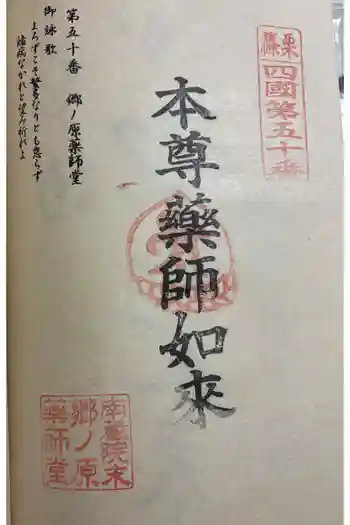 篠栗
四國第五十番
本尊藥師如來
第五十番 郷ノ原藥師堂
御詠歌
よろずこそ繁多なりとも怠らず
諸病なかれと望み祈れよ
南蔵院末
郷ノ原
薬師堂